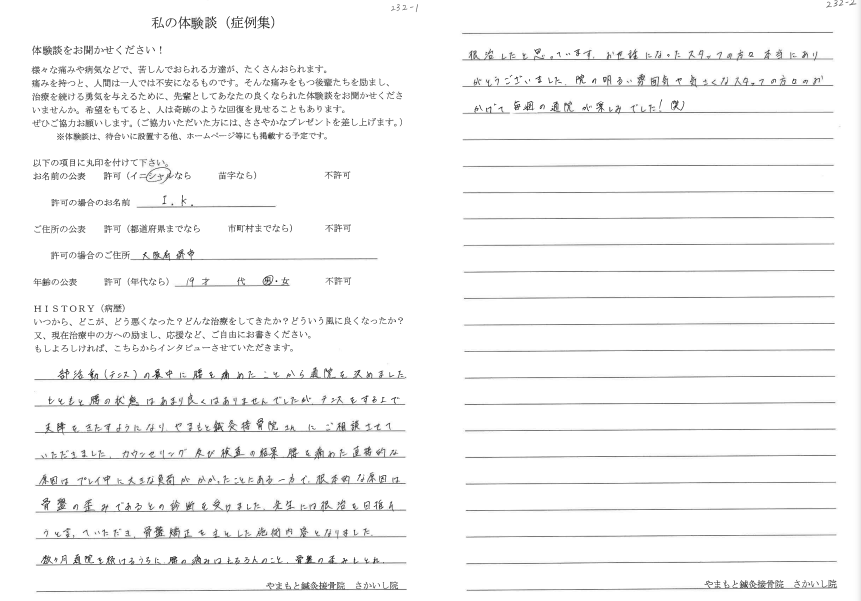 232-1
私の体験談（症例集）
体験談をお聞かせください！
様々な痛みや病気などで、苦しんでおられる方達が、たくさんおられます。
痛みを持つと、人間は一人では不安になるものです。そんな痛みをもつ後輩たちを励まし、
治療を続ける勇気を与えるために、先輩としてあなたの良くなられた体験談をお聞かせくださ
いませんか。希望をもてると、人は奇跡のような回復を見せることもあります。
ぜひご協力お願いします。（ご協力いただいた方には、ささやかなプレゼントを差し上げます。）
※体験談は、待合いに設置する他、ホームページ等にも掲載する予定です。
以下の項目に丸印を付けて下さい。
お名前の公表　許可（イニシャルなら　苗字なら）　不許可
許可の場合のお名前　I. k.
ご住所の公表　許可（都道府県までなら　市町村までなら）　不許可
許可の場合のご住所　大阪府堺市
年齢の公表　許可（年代なら）　19才　代　男・女　不許可
ＨＩＳＴＯＲＹ（病歴）
いつから、どこが、どう悪くなった？どんな治療をしてきたか？どういう風に良くなったか？
又、現在治療中の方への励まし、応援など、ご自由にお書きください。
もしよろしければ、こちらからインタビューさせていただきます。
部活動(テニス)の最中に腰を痛めたことから通院を決めました。
もともと腰の状態はあまり良くはありませんでしたが、テニスをする上で
支障をきたすようになり、やまもと鍼灸接骨院さんにご相談させて
いただきました。カウンセリング及び検査の結果、腰を痛めた直接的な
原因はプレイ中に大きな負荷がかかったことにある一方で、根本的な原因は
骨盤の歪みであるとの診断を受けました。先生には根治を目指そ
うと言っていただき、骨盤矯正を主とした施術内容となりました。
数ヶ月通院を続けるうちに、腰の痛みはもちろんのこと、骨盤の歪みもとれ、
やまもと鍼灸接骨院　さかいし院
232-2
根治したと思っています。お世話になったスタッフの方々本当にあり
がとうございました。院の明るい雰囲気や気さくなスタッフの方々のお
かげで毎週の通院が楽しみでした！(笑)
やまもと鍼灸接骨院　さかいし院